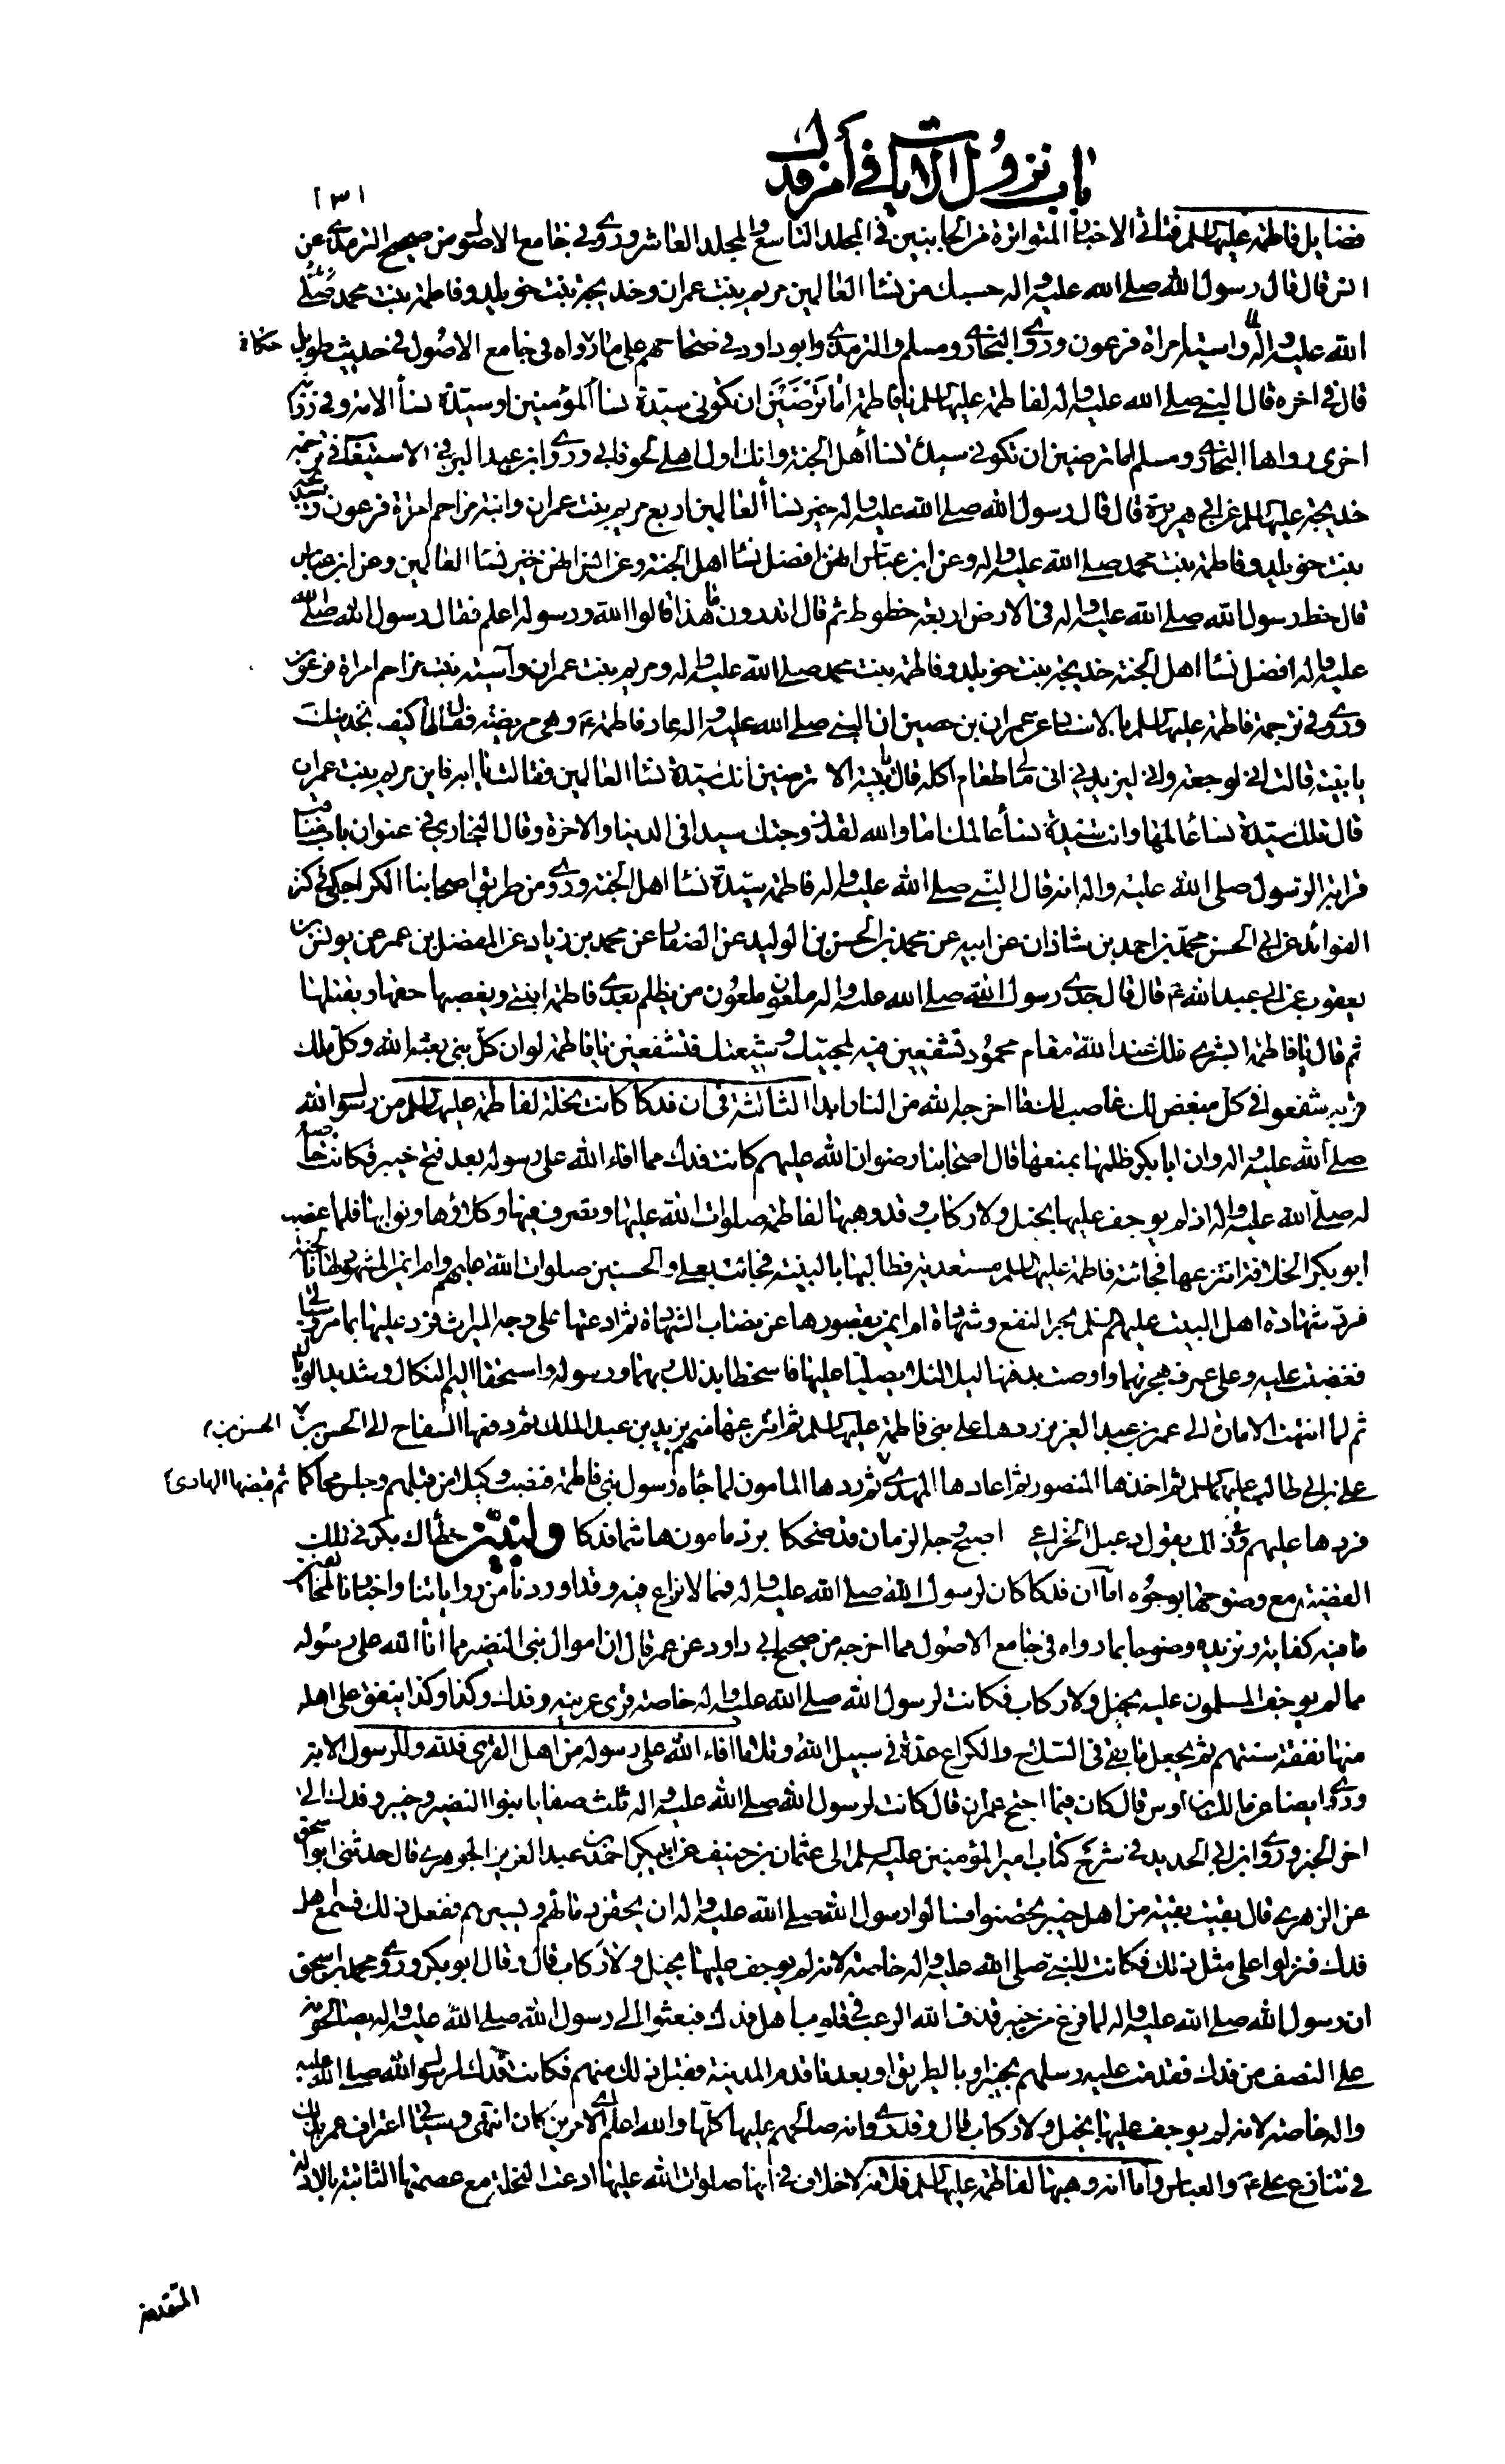 باب نزول الآيات في أمر فدك
١٣١
فضايل فاطمة عليها السلم فتاتي الاخبار المتواترة من الجانبين في المجلد التاسع والمجلد العاشر وروى في جامع الاصول من صحيح الترمذي عن
انس قال قال رسول الله صلى الله عليه واله حسبك من نساء العالمين مريم بنت عمران وخديجة بنت خويلد وفاطمة بنت محمد صلى
الله عليه واله واسية امراة فرعون وروى البخاري ومسلم والترمذي وابو داود في صحاحهم على ما رواه في جامع الاصول في حديث طويل
قال في اخره قال النبي صلى الله عليه واله لفاطمة عليها السلم يا فاطمة اما ترضين ان تكوني سيدة نساء المؤمنين او سيدة نساء الامة وفي رواية
اخرى رواها البخاري ومسلم اما ترضين ان تكوني سيدة نساء أهل الجنة وانك اول اهلي لحوقا بي وروى ابن عبد البر في الاستيعاب في ترجمة
خديجة عليها السلم عن ابي هريرة قال قال رسول الله صلى الله عليه واله خير نساء العالمين اربع مريم بنت عمران وابنة مزاحم امراة فرعون وخديجة
بنت خويلد وفاطمة بنت محمد صلى الله عليه واله وعن ابن عباس انهن افضل نساء اهل الجنة وعن انس انهن خير نساء العالمين وعن ابن عباس
قال خط رسول الله صلى الله عليه واله في الارض اربعة خطوط ثم قال اتدرون ما هذا قالوا الله ورسوله اعلم فقال رسول الله صلى الله
عليه واله افضل نساء اهل الجنة خديجة بنت خويلد وفاطمة بنت محمد صلى الله عليه واله ومريم بنت عمران وآسية بنت مزاحم امراة فرعون
وروى في ترجمة فاطمة عليها السلم بالاسناد عن عمران بن حصين ان النبي صلى الله عليه واله عاد فاطمة ع وهي مريضة فقال لها كيف تجدينك
يا بنية قالت اني لوجعة واني ليزيدني اني ما لي طعام اكله قال يا بنية الا ترضين انك سيدة نساء العالمين فقالت يا ابه فاين مريم بنت عمران
قال تلك سيدة نساء عالمها وانت سيدة نساء عالمك اما والله لقد زوجتك سيدا في الدنيا والاخرة وقال البخاري في عنوان باب مناقب
قرابة الرسول صلى الله عليه واله انه قال النبي صلى الله عليه واله فاطمة سيدة نساء اهل الجنة وروى من طريق اصحابنا الكراجكي في كنز
الفوائد عن ابي الحسن محمد بن احمد بن شاذان عن ابيه عن محمد بن الحسن بن الوليد عن الصفار عن محمد بن زياد عن المفضل بن عمر عن يونس بن
يعقوب عن ابي عبد الله ع قال قال جدي رسول الله صلى الله عليه واله ملعون ملعون من يظلم بعدي فاطمة ابنتي ويغصبها حقها ويقتلها
ثم قال يا فاطمة ابشري فلك عند الله مقام محمود تشفعين فيه لمحبيك وشيعتك فتشفعين يا فاطمة لو ان كل نبي بعثه الله وكل ملك
قربه شفعوا في كل مبغض لك غاصب لك ما اخرجه الله من النار ابدا الثالثة في ان فدكا كانت نحلة لفاطمة عليها السلم من رسول الله
صلى الله عليه واله وان ابا بكر ظلمها بمنعها قال اصحابنا رضوان الله عليهم كانت فدك مما افاء الله على رسوله بعد فتح خيبر فكانت خاصة
له صلى الله عليه واله اذ لم يوجف عليها بخيل ولا ركاب وقد وهبها لفاطمة صلوات الله عليها وتصرف فيها وكلاؤها ونوابها فلما غصب
ابو بكر الخلافة انتزعها فجائته فاطمة عليها السلم مستعدية فطالبها بالبينة فجائت بعلي والحسنين صلوات الله عليهم وام ايمن المشهود لها بالجنة
فرد شهادة اهل البيت عليهم السلم بجر النفع وشهادة ام ايمن بقصورها عن نصاب الشهادة ثم ادعتها على وجه الميراث فرد عليها بما مر وسياتي
فغضبت عليه وعلى عمر فهجرتهما واوصت بدفنها ليلا لئلا يصليا عليها فاسخطا بذلك ربهما ورسوله واستحقا اليم النكال وشديد الوبال
ثم لما انتهت الامارة الى عمر بن عبد العزيز ردها على بني فاطمة عليها السلم ثم انتزعها منهم يزيد بن عبد الملك ثم دفعها السفاح الى الحسن بن الحسن بن
علي بن ابي طالب عليهما السلم ثم اخذها المنصور ثم اعادها المهدي ثم قبضها الهادي ثم ردها المامون لما جاءه رسول بني فاطمة فنصب وكيلا من قبلهم وجلس محاكما
فردها عليهم وفي ذلك يقول دعبل الخزاعي اصبح وجه الزمان قد ضحكا برد مامون هاشما فدكا ولنبين خطأ ابي بكر في تلك
القضية مع وضوحها بوجوه اما ان فدكا كان لرسول الله صلى الله عليه واله فمما لا نزاع فيه وقد اوردنا من رواياتنا واخبار المخالفين
ما فيه كفاية ونزيده وضوحا بما رواه في جامع الاصول مما اخرجه من صحيح ابي داود عن عمر قال ان اموال بني النضير مما أفاء الله على رسوله
مما لم يوجف المسلمون عليه بخيل ولا ركاب فكانت لرسول الله صلى الله عليه واله خاصة قرى عرينة وفدك وكذا وكذا ينفق على اهله
منها نفقة سنتهم ثم يجعل ما بقي في السلاح والكراع عدة في سبيل الله وتلا ما افاء الله على رسوله من اهل القرى فلله وللرسول الاية
وروى ايضا عن مالك بن اوس قال كان فيما احتج عمر ان قال كانت لرسول الله صلى الله عليه واله ثلث صفايا بنو النضير وخيبر وفدك الى
اخر الخبر وروى ابن ابي الحديد في شرح كتاب امير المؤمنين عليه السلم الى عثمان بن حنيف عن ابي بكر احمد بن عبد العزيز الجوهري قال حدثني ابو اسحق
عن الزهري قال بقيت بقية من اهل خيبر تحصنوا فسالوا رسول الله صلى الله عليه واله ان يحقن دمائهم ويسيرهم ففعل ذلك فسمع اهل
فدك فنزلوا على مثل ذلك فكانت للنبي صلى الله عليه واله خاصة لانه لم يوجف عليها بخيل ولا ركاب قال وقال ابو بكر وروى محمد بن اسحق
ان رسول الله صلى الله عليه واله لما فرغ من خيبر قذف الله الرعب في قلوب اهل فدك فبعثوا الى رسول الله صلى الله عليه واله يصالحونه
على النصف من فدك فقدمت عليه رسلهم بخيبر او بالطريق او بعد ما قدم المدينة فقبل ذلك منهم فكانت فدك لرسول الله صلى الله عليه
واله خاصة لانه لم يوجف عليها بخيل ولا ركاب قال وقد روى انه صالحهم عليها كلها والله اعلم اي الامرين كان انتهى وسياتي اعتراف عمر بذلك
في تنازع علي ع والعباس واما انه وهبها لفاطمة عليها السلم فلانه لا خلاف في انها صلوات الله عليها ادعت النحلة مع عصمتها الثابتة بالادلة
المتقدمة